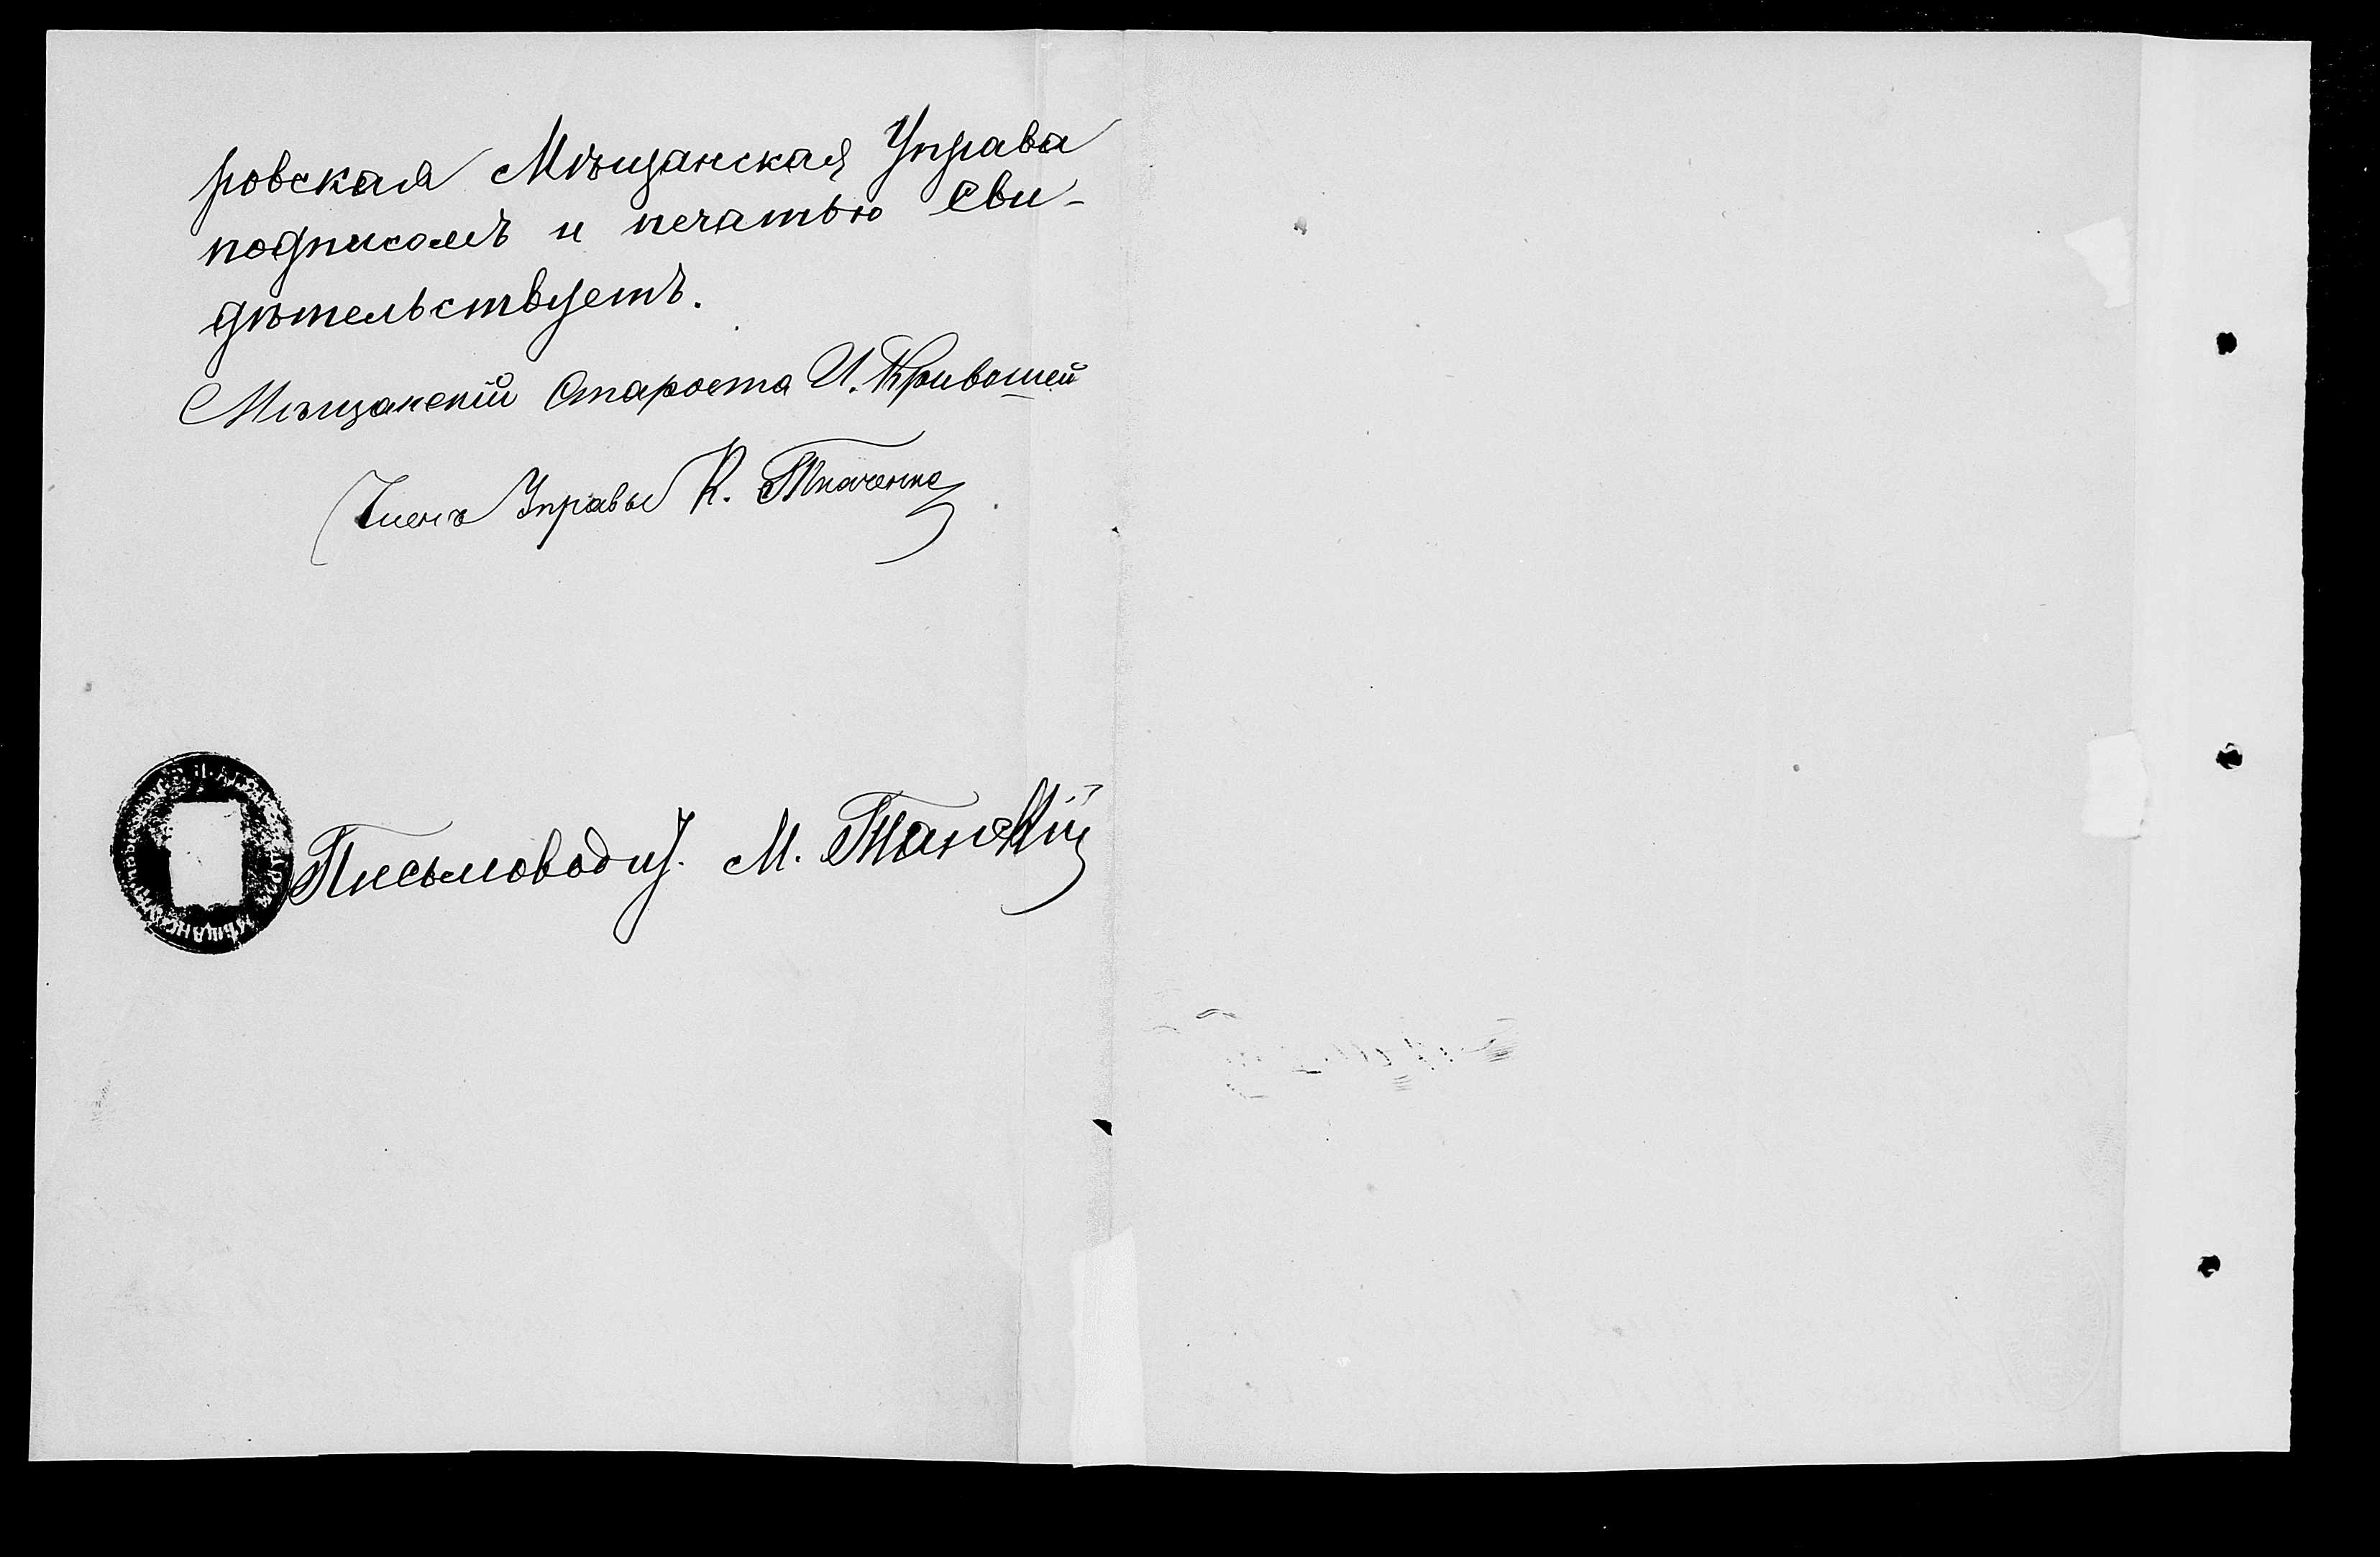 ровская Мѣщанская Управа
подписомъ и печатью сви-
дѣтельствуетъ.
Мѣщанскій Староста И. Кривошей
Членъ Управы К. Ткаченко
Письмовод. М. Танскій